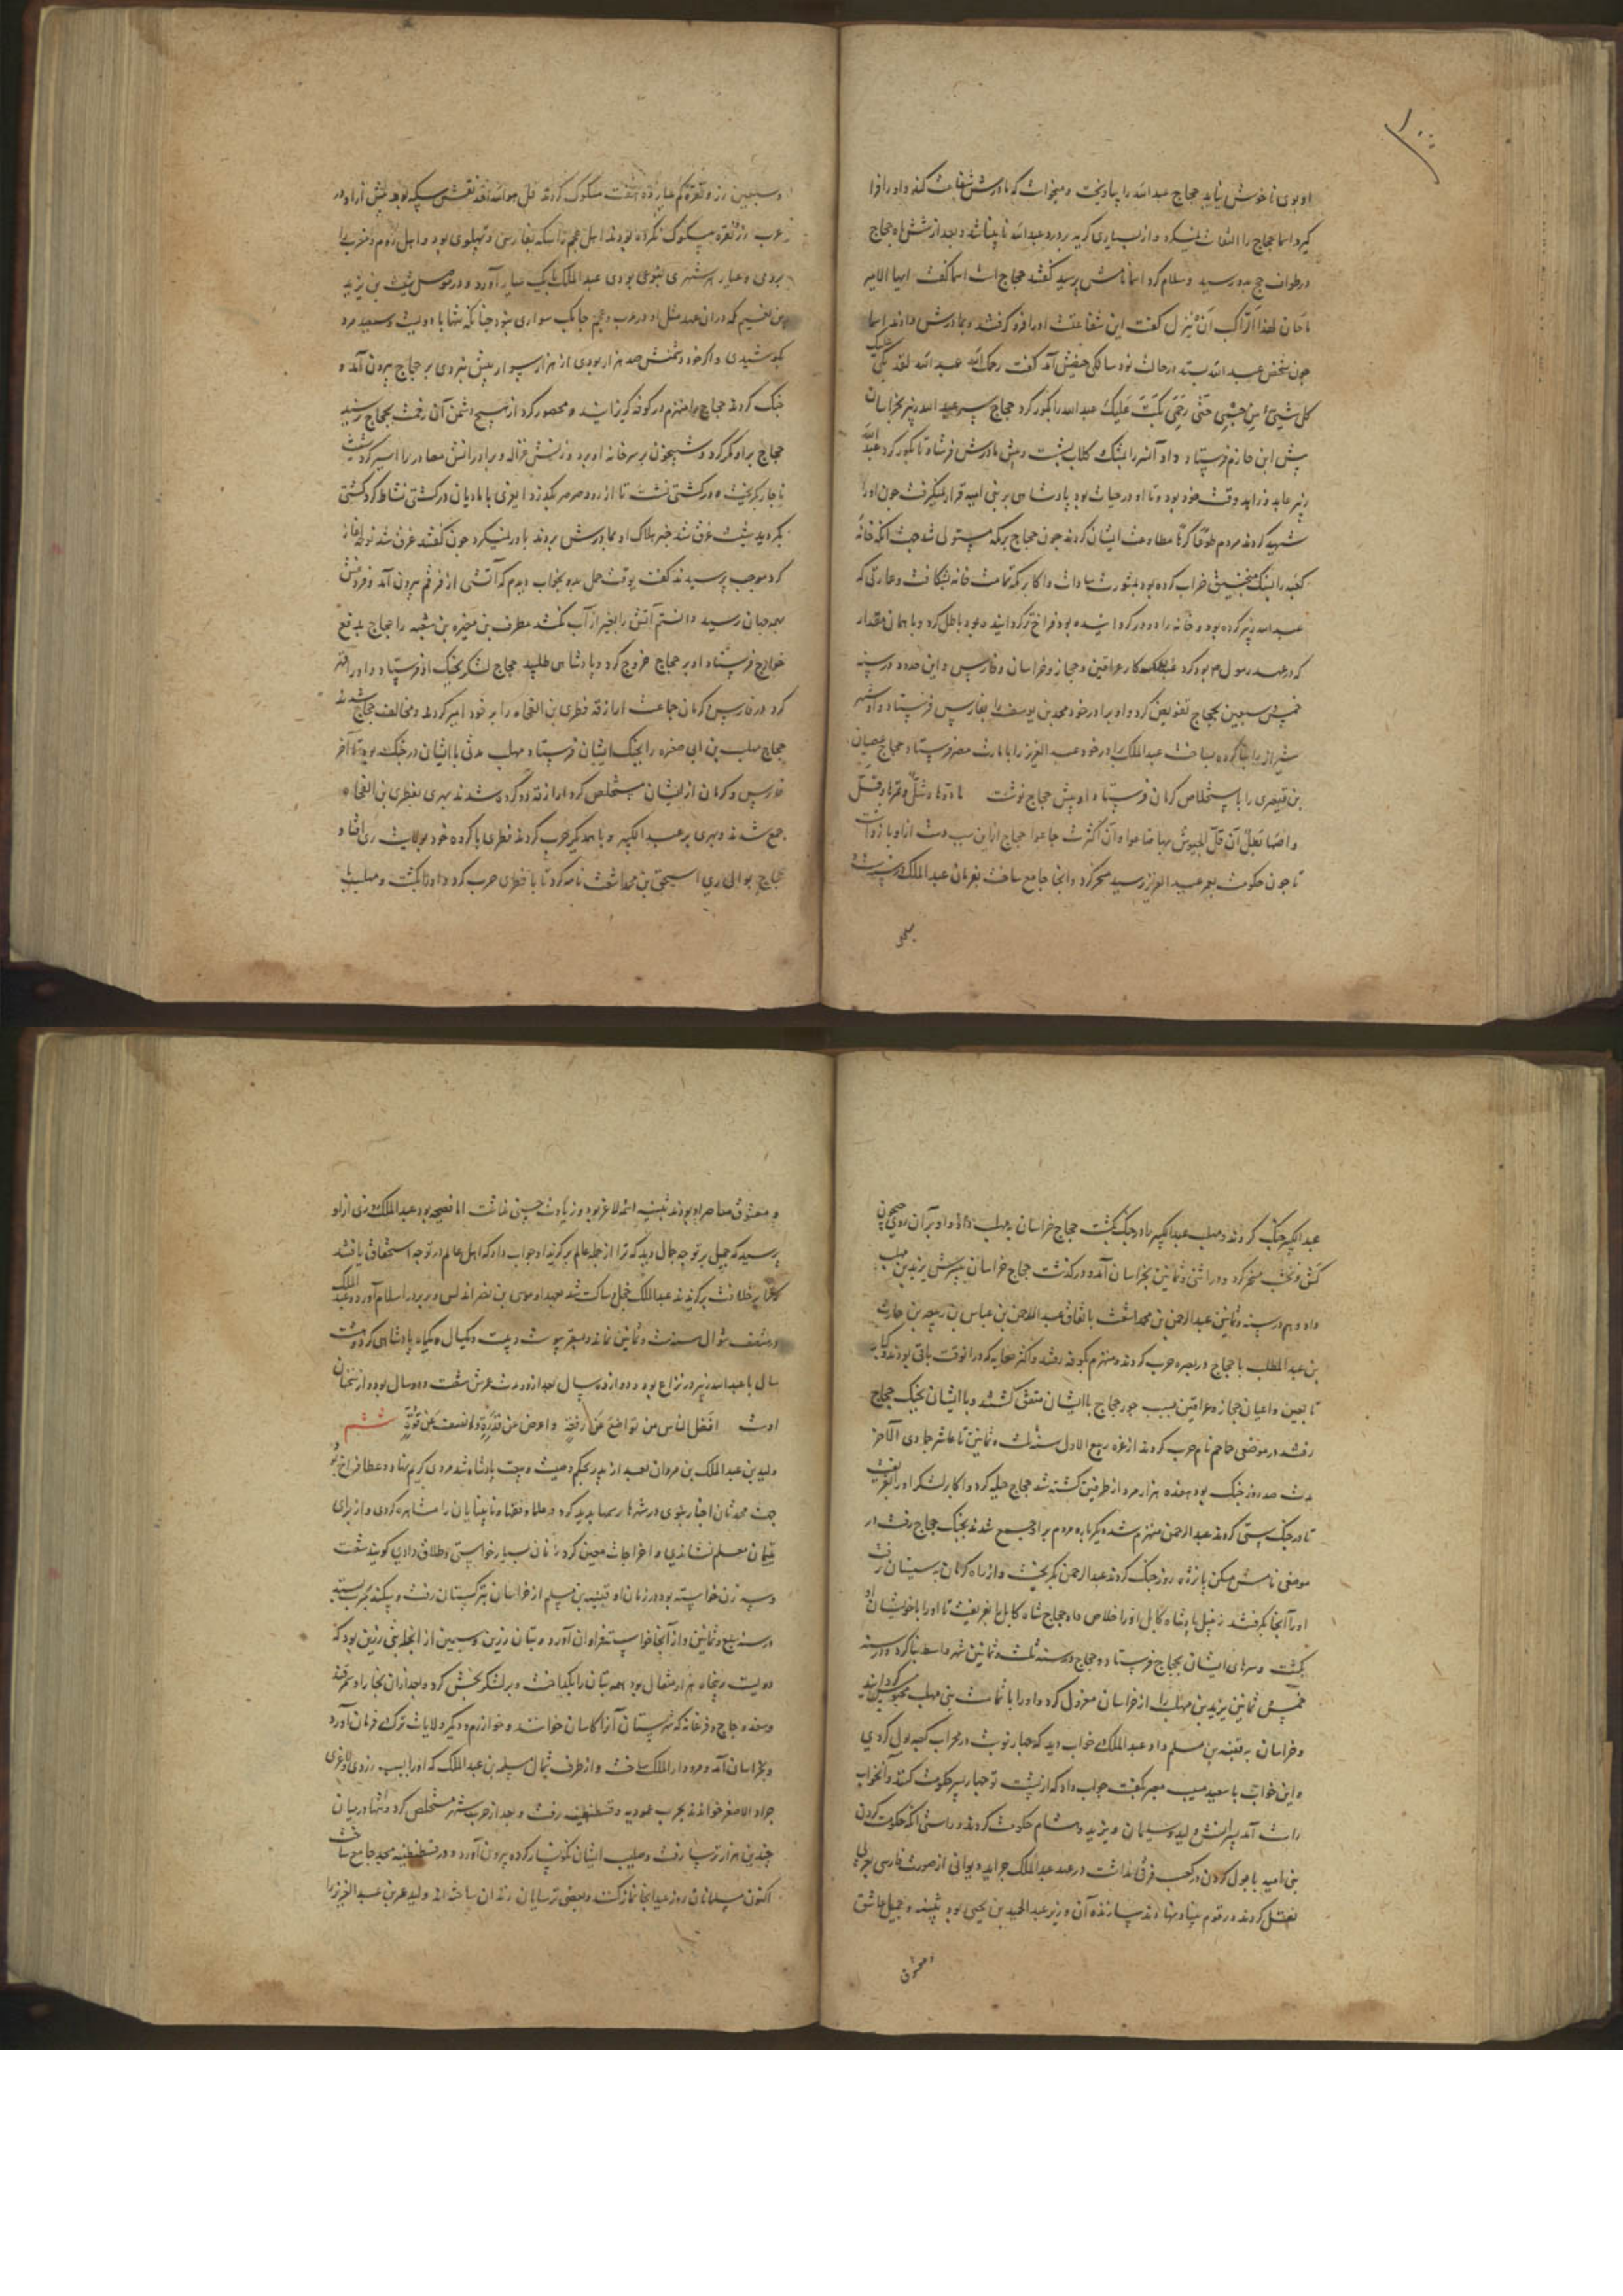 ۱۰۰
او بوی ناخوش نیاید حجاج عبدالله را بیاویخت و میخواست که مادرش شفاعت کند و او را فرو
گیرد اسما حجاج را التفات نمیکرد و از بسیاری گریه بر درد عبدالله نابینا شد و بعد از شش ماه حجاج
در طواف حج بدو رسید و سلام کرد اسما نامش پرسید گفتند حجاج است اسما گفت ایها الامیر
ماحان لهذا الراکب ان ینزل گفت این شفاعتست او را فرو گرفتند و بمادرش دادند اسما
چون شخص عبدالله بستد در حالت نود سالگی حیضش آمد گفت رحمک الله عبدالله لقد بکی علیک
کل شیئ من حتی رحمی بکت علیک عبدالله را بکور کرد حجاج سر عبدالله زبیر بخراسان
پیش ابن حازم فرستاد و او آنرا بمشک گلاب بشست و پیش مادرش فرستاد تا بگور کرد عبدالله
زبیر عابد و زاهد وقت خود بود و تا او در حیات بود پادشاهی بر بنی امیه قرار نمیگرفت چون او را
شهید کردند مردم طوعا کرها مطاوعت ایشان کردند چون حجاج بر مکه مستولی شد جهت آنکه خانه
کعبه را بسنک منجنیق خراب کرده بود بمشورت سادات و اکابر مکه تمامت خانه بشکافت و عمارتی که
عبدالله زبیر کرده بود و خانه را دو در گردانیده بود فراخ تر گردانیده بود باطل کرد و با همان مقدار
که در عهد رسول م بود کرد عبدالملک کار عراقین و حجاز و خراسان و فارس و این حدود در سنه
خمس و سبعین بحجاج تفویض کرد و او برادر خود محمد بن یوسف را بفارس فرستاد و او شهر
شیراز را بنا کرده بساخت عبدالملک برادر خود عبدالعزیز را بامارت مصر فرستاد حجاج غضبان
بن قبعثری را باستخلاص کرمان فرستاد او پیش حجاج نوشت ماءها وشل و تمرها دقل
و لصها بطل ان قل الجیوش بها ضاعوا و ان کثرت جاعوا حجاج ازین سبب دست از او باز داشت
تا چون حکومت بعمر عبدالعزیز رسید مسخر کرد و آنجا جامع ساخت بفرمان عبدالملک در سنه ست و
سبعین
و سبعین زر و نقره کم عیار ده هفت مسکوک کردند قل هو الله احد نقش سکه بود پیش از او در
عرب زر و نقره مسکوک نکرده بودند اهل عجم را سکه بفارسی و پهلوی بود و اهل روم و مغرب را
برومی و عیار هر شهری بنوعی بودی عبدالملک بیک عیار آورد و در موصل شبیب بن یزید
بن نعیم که در آن عهد مثل او در عرب و عجم چابک سواری نبود چنانکه بتنها با دویست و سیصد مرد
بکوشیدی و اگر خود دشمنش صد هزار بودی از هزار سوار بیش نبردی بر حجاج بیرون آمد و
جنک کردند حجاج را منهزم در کوفه گریزانید و محصور کرد از هیچ دشمن آن زحمت بحجاج نرسید
حجاج بر او مکر کرد و شبیخون بر سر خانه او برد و زنش غزاله و برادرانش مصاد را اسیر کرد شبیب
ناچار بگریخت و در کشتی نشست تا از رود صرصر بگذرد ایغری با مادیان در کشتی نشاط کرد کشتی
بگردید شبیب غرق شد خبر هلاک او بمادرش بردند باور نمیکرد چون گفتند غرق شد نوحه آغاز
کرد موجب پرسیدند گفت بوقت حمل بدو بخواب دیدم که آتشی از فرجم بیرون آمد و فروغش
بهمه جهان رسید دانستم آتش را بغیر از آب نکشد مطرف بن مغیره بن شعبه را حجاج بدفع
خوارج فرستاد او بر حجاج خروج کرد و پادشاهی طلبید حجاج لشکر بجنک او فرستاد و او را قهر
کرد در فارس و کرمان جماعت ازارقه قطری بن الفجاه را بر خود امیر کردند و مخالف حجاج شدند
حجاج مهلب بن ابی صفره را بجنک ایشان فرستاد مهلب مدتی با ایشان در جنک بود تا آخر
فارس و کرمان از ایشان مستخلص کرد ازارقه دو گروه شدند بهری بقطری بن الفجاه
جمع شدند و بهری بر عبدالکبیر و با همدیگر حرب کردند قطری با گروه خود بولایت ری افتاد
حجاج بوالی ری اسحق بن محمد اشعث نامه کرد تا با قطری حرب کرد و او را بکشت و مهلب با
عبدالکبیر جنک کردند و مهلب عبدالکبیر را در جنک بکشت حجاج خراسان بمهلب داد و او بر آن روی جیحون
کش و نخشب مسخر کرد و در اثنی و ثمانین بخراسان آمد و درگذشت حجاج خراسان بپسرش یزید بن مهلب
داد و هم در سنه و ثمانین عبدالرحمن بن محمد اشعث باتفاق عبدالرحمن بن عباس بن ربیعه بن حارث
بن عبدالمطلب با حجاج در بصره حرب کردند و منهزم بکوفه رفتند و اکثر صحابه که در آنوقت باقی بودند و کبار
تابعین و اعیان حجاز و عراقین بسبب جور حجاج با ایشان متفق گشتند و با ایشان بجنک حجاج
رفتند در موضعی جماجم نام حرب کردند از غره ربیع الاول سنه ثلث و ثمانین تا عاشر جمادی الآخر
مدت صد روز جنک بود هفده هزار مرد از طرفین کشته شد حجاج حیله کرد و اکابر لشکر او را بفریفت
تا در جنک سستی کردند عبدالرحمن منهزم شد دیگرباره مردم برو جمع شدند بجنک حجاج رفت در
موضعی نامش مسکن پانزده روز جنک کردند عبدالرحمن بگریخت و از راه کرمان به سیستان رفت
او را آنجا بگرفتند زنبیل پادشاه کابل او را خلاص داد حجاج شاه کابل را بفریفت تا او را با خویشان او
بکشت و سرهای ایشان بحجاج فرستاد و حجاج در سنه ثلث و ثمانین شهر واسط بنا کرد و در سنه
خمس و ثمانین یزید بن مهلب را از خراسان معزول کرد و او را با تمامت بنی مهلب محبوس گردانید
و خراسان به قتیبه بن مسلم داد عبدالملک در خواب دید که چهار نوبت در محراب کعبه بول کردی
و این خواب با سعید مسیب معبر بگفت جواب داد که از پشت تو چهار پسر حکومت کنند و آنخواب
راست آمد پسرانش ولید و سلیمان و یزید و هشام حکومت کردند و راستی آنکه حکومت کردن
بنی امیه با بول کردن در کعب فرقی نداشت در عهد عبدالملک جراید دیوانی از صورت فارسی بعربی
نقل کردند و رقوم بنیاد نهادند سازنده آن وزیر عبدالحمید بن یحیی بود بثینه و جمیل عاشق
و معشوق
و معشوق معاصر او بودند بثینه اسمر لاغر بود و زیادت حسنی نداشت اما فصیحه بود عبدالملک روزی از او
پرسید که جمیل بر تو چه جمال دید که ترا از جمله عالم برگزید او جواب داد که اهل عالم در تو چه استحقاق یافتند
که بخلافت برگزیدند عبدالملک خجل و ساکت شد بعهد او موسی بن نصر اندلس و بربر در اسلام آورد و عبدالملک
در منتصف شوال سنه ست و ثمانین نماند و بسقر پیوست و بیست و یکسال و یکماه پادشاهی کرد و هشت
سال با عبدالله زبیر در نزاع بود و دوازده سال بعد از و مدت عمرش شصت و دو سال بود و از سخنان
اوست افضل الناس من تواضع عن رفعة و اعرض عن قدرة و انصف عن قوة ششم
ولید بن عبدالملک بن مروان بعد از پدر بحکم وصیت و بیعت پادشاه شد مردی کریم نهاد و عطا فراخ بود
جهت محدثان اخبار نبوی در شهرها رسمها پدید کرد و علما و فقها و نابینایان را مشاهره کردی و از برای
یتیمان معلم نشاندی و اخراجات معین کرد زنان بسیار خواستی و طلاق دادی گویند شصت
و سه زن خواسته بود در زمان او قتیبه بن مسلم از خراسان بترکستان رفت و بیکند بحرب بستد
در سنه سبع و ثمانین و از آنجا خواسته فراوان آورد و بتان زرین و سیمین از انجمله بتی زرین بود که
دویست و پنجاه هزار مثقال بود همه بتان را بگداخت و بر لشکر بخش کرد و بعد از آن بخارا و سمرقند
و سغد و چاچ و فرغانه که شهرستان آنرا کاسان خوانند و خوارزم و دیگر ولایات ترک در فرمان آورد
و بخراسان آمد و مرو دار الملک ساخت و از طرف شمال مسلمه بن عبدالملک که او را بسبب زردی و لاغری
جراد الاصفر خواندند بحرب عموریه و قسطنطنیه رفت و بعد از حرب شهر مستخلص کرد و تنها در میان
چندین هزار ترسا رفت و صلیب ایشان نگونسار کرده بیرون آورد و در قسطنطنیه مسجد جامع ساخت
اکنون مسلمانان روز عید آنجا نماز کنند و بعضی ترسایان زندان ساخته اند ولید عمر بن عبدالعزیز را